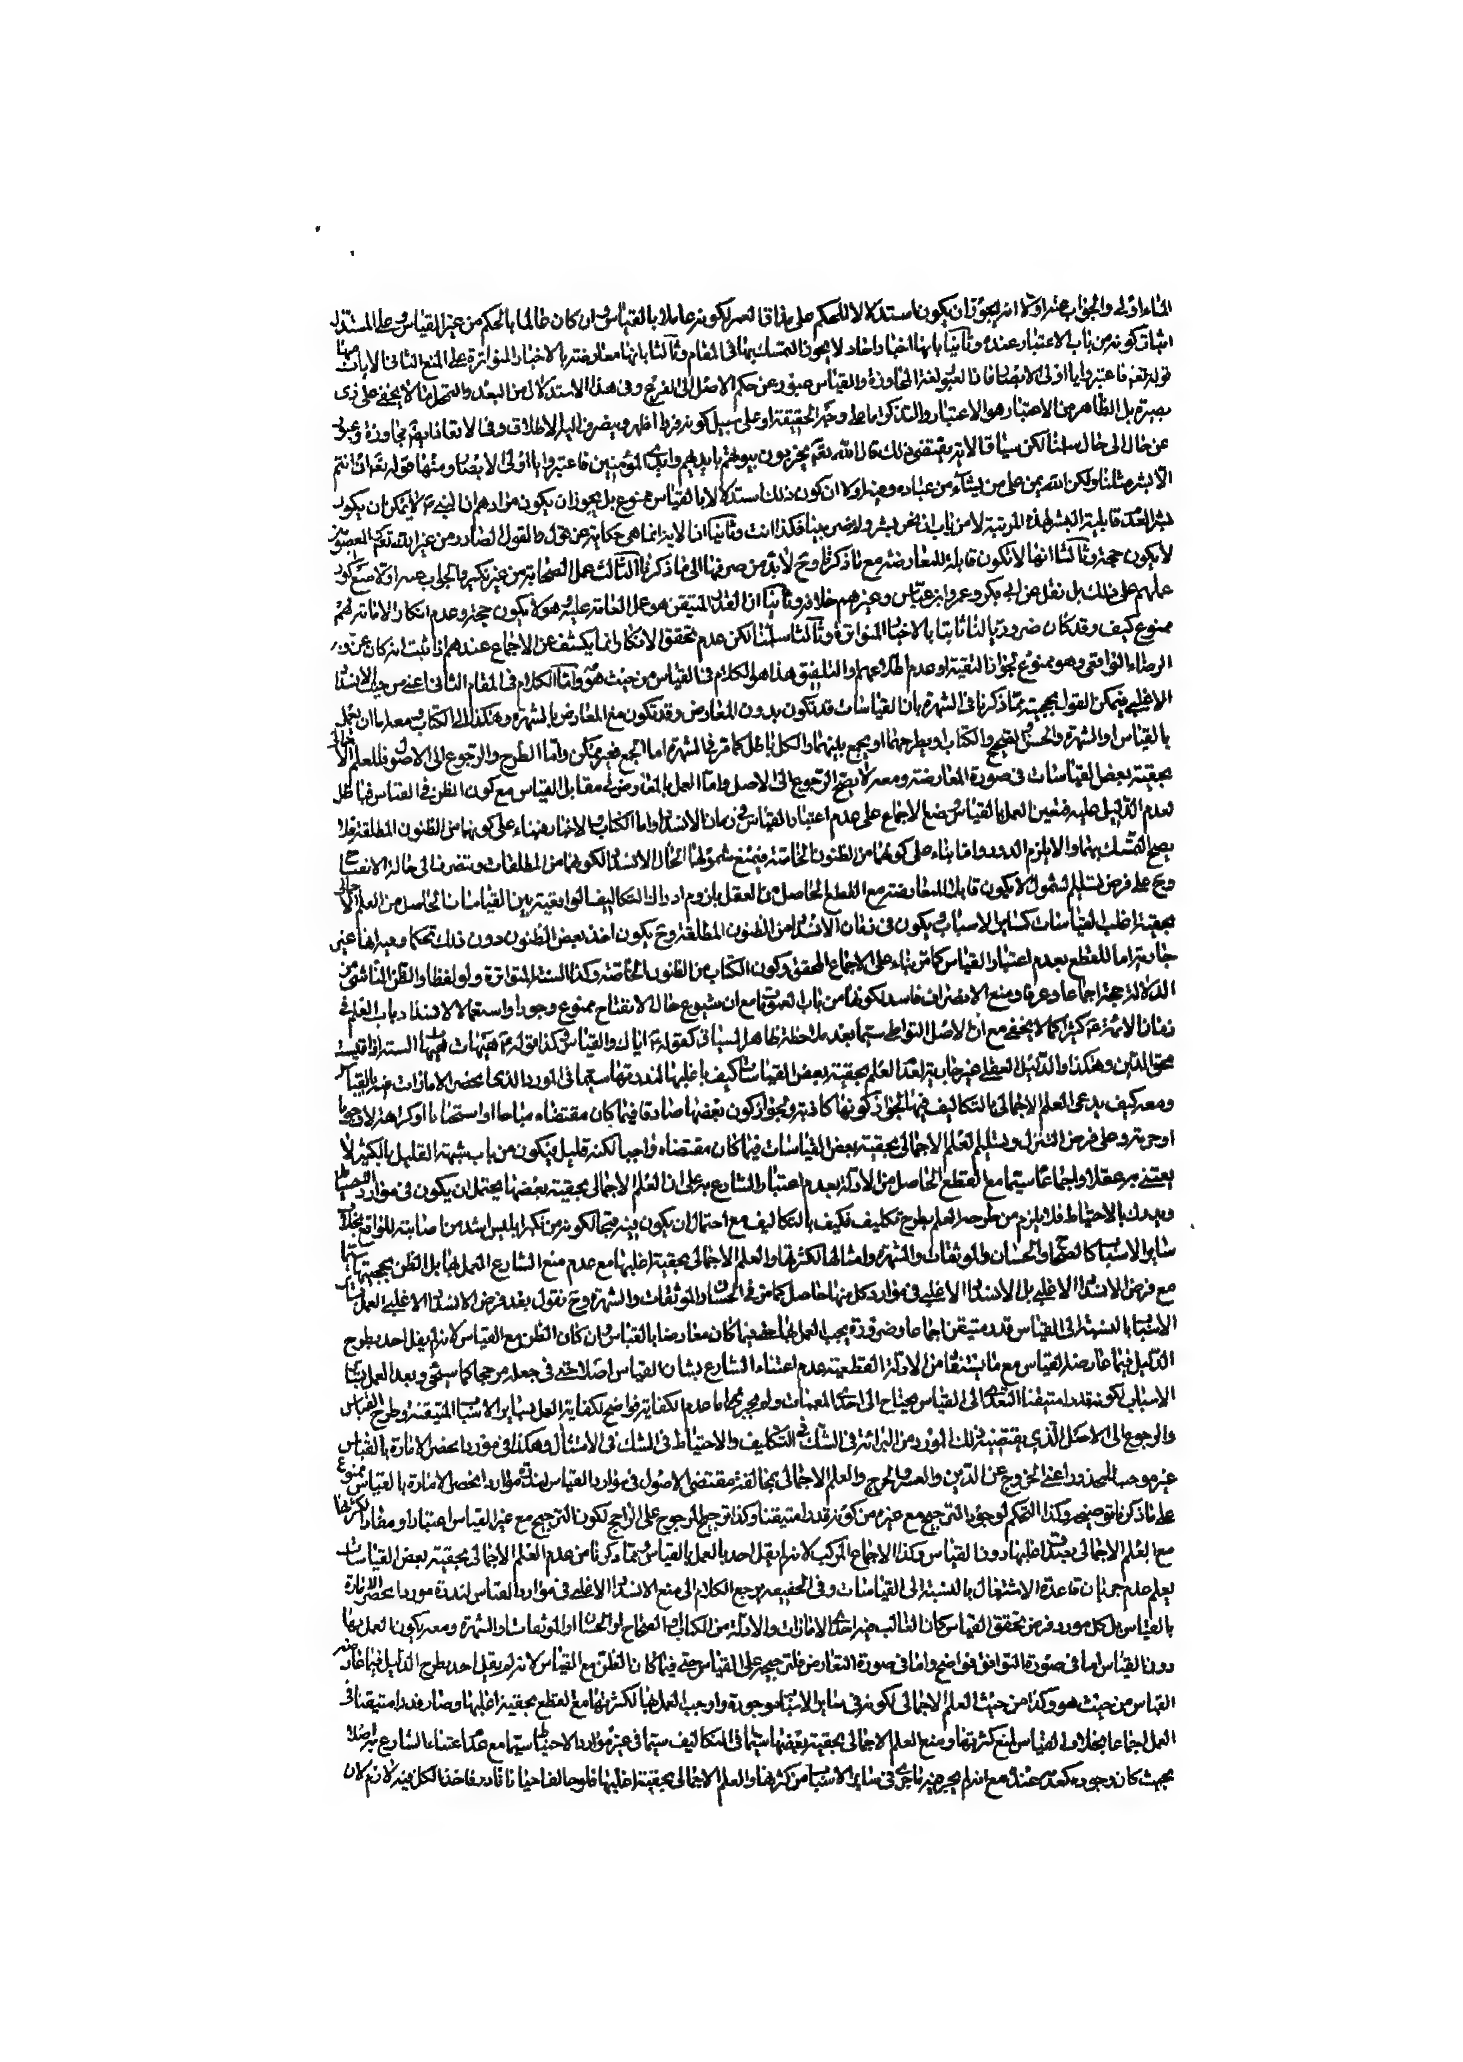 الماء اولى والجواب عنه اولا انه يجوز ان يكون استدلالا للحكم على مذاق العمر لكونه عاملا بالقياس وان كان عالما بالحكم من غير القياس وعلى المستدل
اثبات كونه من باب الاعتبار عنده وثانيا بانها اخبار احاد لا يجوز التمسك بها في المقام وثالثا بانها معارضة بالاخبار المتواترة على المنع الثاني الايات منها
قوله تعالى فاعتبروا يا اولى الابصار فان العبور لغة المجاوزة والقياس عبور عن حكم الاصل الى الفرع وفي هذا الاستدلال من البعد والتمحل ما لا يخفى على ذى
بصيرة بل الظاهر من الاعتبار هو الاعتبار والتذكر اما على وجه الحقيقة او على سبيل كونه فردا اظهر وينصرف اليه الاطلاق وفي الاتعاظ ايضا مجاوزة وعبور
عن حال الى حال سلمنا لكن سياق الاية يقتضى ذلك قال الله تعالى يخربون بيوتهم بايديهم وايدى المؤمنين فاعتبروا يا اولى الابصار ومنها قوله تعالى ان انتم
الا بشر مثلنا ولكن الله يمن على من يشاء من عباده وفيه اولا ان كون ذلك استدلالا بالقياس ممنوع بل يجوز ان يكون مرادهم ان النبى ع لا يمكن ان يكون
بشرا لعدم قابلية البشر لهذه المرتبة لا من باب انا نحن بشر ولا نصير نبيا فكذا انت وثانيا ان الاية انما هى حكاية عن قول والقول الصادر من غير الله تعالى والمعصومين
لا يكون حجة وثالثا انها لا تكون قابلة للمعارضة مع ما ذكرنا وح لا بد من صرفها الى ما ذكرنا الثالث عمل الصحابة من غير نكير والجواب عنه اولا منع كون
عملهم على ذلك بل نقل عن ابى بكر وعمر وابن عباس وغيرهم خلافه وثانيا ان القدر المتيقن هو عمل العامة عليه وهو لا يكون حجة وعدم انكار الامامية لهم
ممنوع كيف وقد كان ضروريا لنا ثابتا بالاخبار المتواترة وثالثا سلمنا لكن عدم تحقق الانكار انما يكشف عن الاجماع عندهم اذا ثبت انه كان عن
الرضاء الواقعى وهو ممنوع لجواز التقية او عدم اطلاعهم والتلفيق هذا هو الكلام في القياس من حيث هو واما الكلام في المقام الثانى اعنى من حيث الانسداد
الاغلبى فيمكن القول بحجيته مما ذكرنا في الشهرة بان القياسات قد تكون بدون المعارض وقد تكون مع المعارض بالشهرة وهكذا الى الكتاب ومعه اما ان يعمل
بالقياس او الشهرة والحسن والصحيح والكتاب او يطرحهما او يجمع بينهما والكل باطل كما مر في الشهرة اما الجمع فغير ممكن واما الطرح والرجوع الى الاصول فللعلم الاجمالى
بحقية بعض القياسات في صورة المعارضة ومعه لا يصح الرجوع الى الاصل واما العمل بالمعارض في مقابل القياس مع كون الظن في القياس فباطل
لعدم الدليل عليه فتعين العمل بالقياس ومنع الاجماع على عدم اعتبار القياس في زمان الانسداد واما الكتاب والاخبار فبناء على كونهما من الظنون المطلقة فلا
يصح التمسك بهما والا يلزم الدور واما بناء على كونهما من الظنون الخاصة فيمنع شمولهما لحال الانسداد لكونهما من المطلقات وينصرف الى حالة الانفتاح
وح على فرض تسليم الشمول لا يكون قابلا للمعارضة مع القطع الحاصل من العقل بلزوم ادراك التكاليف الواقعية بين القياسات الحاصل من العلم الاجمالى
بحقية اغلب القياسات كساير الاسباب ويكون في زمان الانسداد من الظنون المطلقة وح يكون اخذ بعض الظنون دون ذلك تحكما وفيه انها غير
جارية اما للقطع بعدم اعتبار القياس كما مر بناء على الاجماع المحقق وكون الكتاب من الظنون الخاصة وكذا السنة المتواترة ولو لفظا والظن الناشى من
الدلالة حجة اجماعا وعرفا ومنع الانصراف فاسد لكونها من باب العموم مع ان شيوع حال الانفتاح ممنوع وجودا واستعمالا لانسداد باب العلم في
زمان الائمة ع كثيرا كما لا يخفى مع ان الاصل التواطى سيما بعد ملاحظة ظاهر السياق كقوله ع اياك والقياس وكذا قوله ع هيهات فيهما السنة اذا قيست
محق الدين وهكذا والدليل العقلى غير جارية لعدم العلم بحقية بعض القياسات كيف باغلبها لندرتها سيما في المورد الذى انحصر الامارات فيه بالقياس
ومعه كيف يدعى العلم الاجمالى بالتكاليف فيها لجواز كونها كاذبة ويجوز كون بعضها صادقا فيما كان مقتضاه مباحا او استحبابا او كراهة لا وجوبا
او حرمة وعلى فرض التنزل وتسليم العلم الاجمالى بحقية بعض القياسات فيما كان مقتضاه واجبا لكنه قليل فيكون من باب شبهة القليل بالكثير لا
يعتنى به عقلا واجماعا سيما مع القطع الحاصل من الادلة بعدم اعتبار الشارع به على ان العلم الاجمالى بحقية بعضها يحتمل ان يكون في موارد الاحتياط
ويدرك بالاحتياط فلا يلزم من طرحه العلم بطرح تكليف فكيف بالتكاليف مع احتمال ان يكون فيه قبحا لكونه من تكرار بليس اشد من اصابته للواقع بخلاف
ساير الاسباب كالصحاح والحسان والموثقات والشهرة وامثالها لكثرتها والعلم الاجمالى بحقية اغلبها مع عدم منع الشارع العمل بها بل الظن بحجيتها سيما
مع فرض الانسداد الاغلبى بل الانسداد الاغلبى في موارد كل منها حاصل كما مر في الحسان والموثقات والشهرة وح نقول بعد فرض الانسداد الاغلبى العمل بتلك
الاسباب بالنسبة الى القياس قدر متيقن اجماعا وضرورة يجب العمل بها حتى فيما كان معارضا بالقياس وان كان الظن مع القياس لانه لم يقل احد بطرح
الدليل فيما عارضه القياس مع ما يستفاد من الادلة القطعية عدم اعتناء الشارع بشان القياس اصلا حتى في جعله مرجحا كما سيجئ وبعد العمل بتلك
الاسباب لكونه قدرا متيقنا التعدى الى القياس يحتاج الى احدى المعممات ولم يجر بها اما عدم الكفاية فواضح لكفاية العمل بساير الاسباب المتيقنة وطرح القياس
والرجوع الى الاصل الذى يقتضيه ذلك المورد من البرائة في الشك في التكليف والاحتياط في الشك في الامتثال وهكذا في مورد انحصر الامارة بالقياس
غير موجب للمحذور اعنى الخروج عن الدين والعسر والحرج والعلم الاجمالى بمخالفة مقتضى الاصول في موارد القياس لندرة موارد انحصر الامارة بالقياس ممنوع
على ما ذكرنا توضيحه وكذا التحكم لوجود الترجيح مع غيره من كونه قدرا متيقنا وكذا ترجيح المرجوح على الراجح لكون الترجيح مع غير القياس اعتبارا ومفادا لكثرتها
مع العلم الاجمالى بحقية اغلبها دون القياس وكذا الاجماع المركب لانه لم يقل احد بالعمل بالقياس ومما ذكرنا من عدم العلم الاجمالى بحقية بعض القياسات
يعلم عدم جريان قاعدة الاشتغال بالنسبة الى القياسات وفي الحقيقة يرجع الكلام الى منع الانسداد الاغلبى في موارد القياس لندرة مورد انحصر الامارة
بالقياس بل كل مورد فرض تحقق القياس كان الغالب فيه احدى الامارات والادلة من الكتاب والصحاح او الحسان او الموثقات او الشهرة ومعه يكون العمل بها
دون القياس اما في صورة التوافق فواضح واما في صورة التعارض فلترجيحه على القياس حتى فيما كان الظن مع القياس لانه لم يقل احد بطرح الدليل فيما عارضه
القياس من حيث هو وكذا من حيث العلم الاجمالى لكونه في ساير الاسباب موجودة واوجب العمل بها لكثرتها مع القطع بحقية اغلبها وصار قدرا متيقنا في
العمل اجماعا بخلاف القياس لمنع كثرتها ومنع العلم الاجمالى بحقية بعضها سيما في التكاليف سيما في غير موارد الاحتياط سيما مع عدم اعتناء الشارع به اصلا
بحيث كان وجوده كعدمه عنده مع انه لم يجر فيه ما جرى في ساير الاسباب من كثرتها والعلم الاجمالى بحقية اغلبها فلو خالف احيانا نادر مفاخذ الكل فيه لانعدام لان